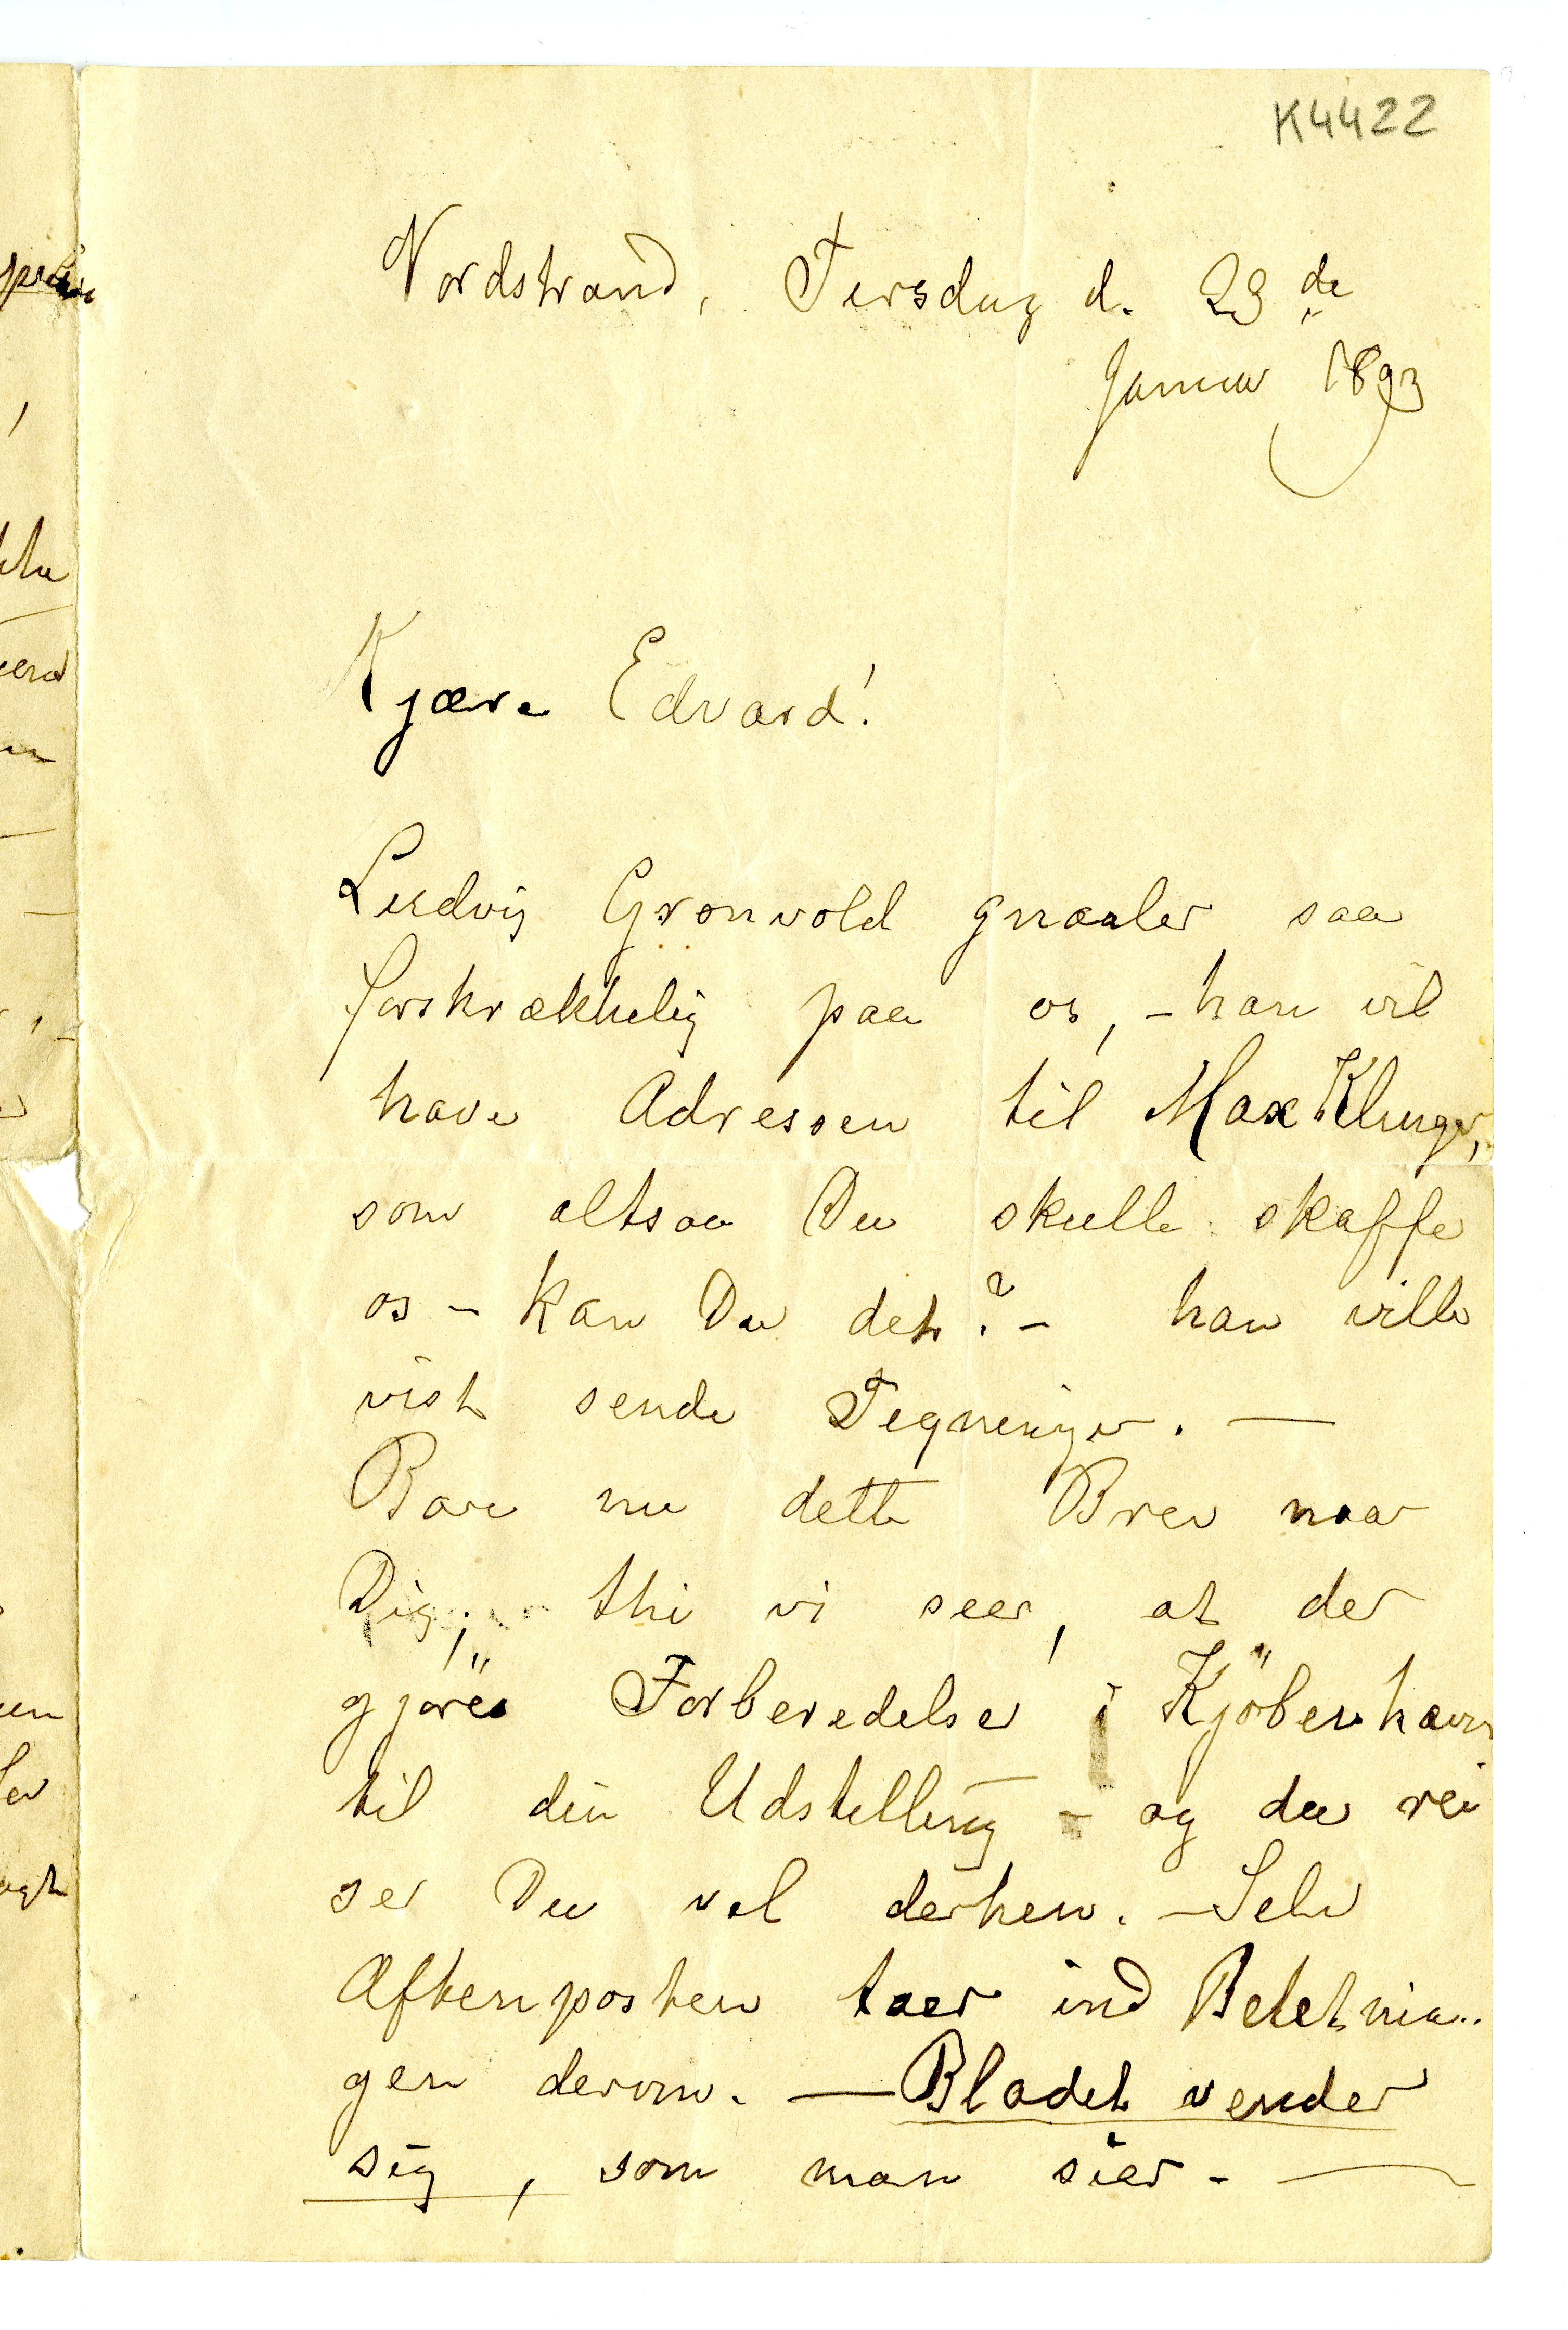 K4422
Nordstrand, Tirsdag d. 23de
Januar 1893
Kjære Edvard!
Ludvig Grønvold gnaaler saa
forskrækkelig paa os, – han vil
have Adressen til Max Klinger,
som altsaa Du skulle skaffe
os – kan Du det? – han ville
vist sende Tegninger. —
Bare nu dette Brev naar
Dig; thi vi seer, at der
gjøres Forberedelser i Kjöbenhavn
til din Udstilling – og da rei
ser Du vel derhen. – Selv
Aftenposten taer ind Beretnin..
gen derom. — Bladet vender
sig, som man sier. —